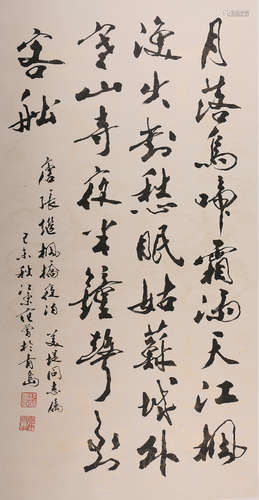 月落烏啼霜滿天江楓
漁火對愁眠姑蘇城外
寒山寺夜半鐘聲到
客船
唐張繼楓橋夜泊 同志屬
己未秋江東范曾於青島